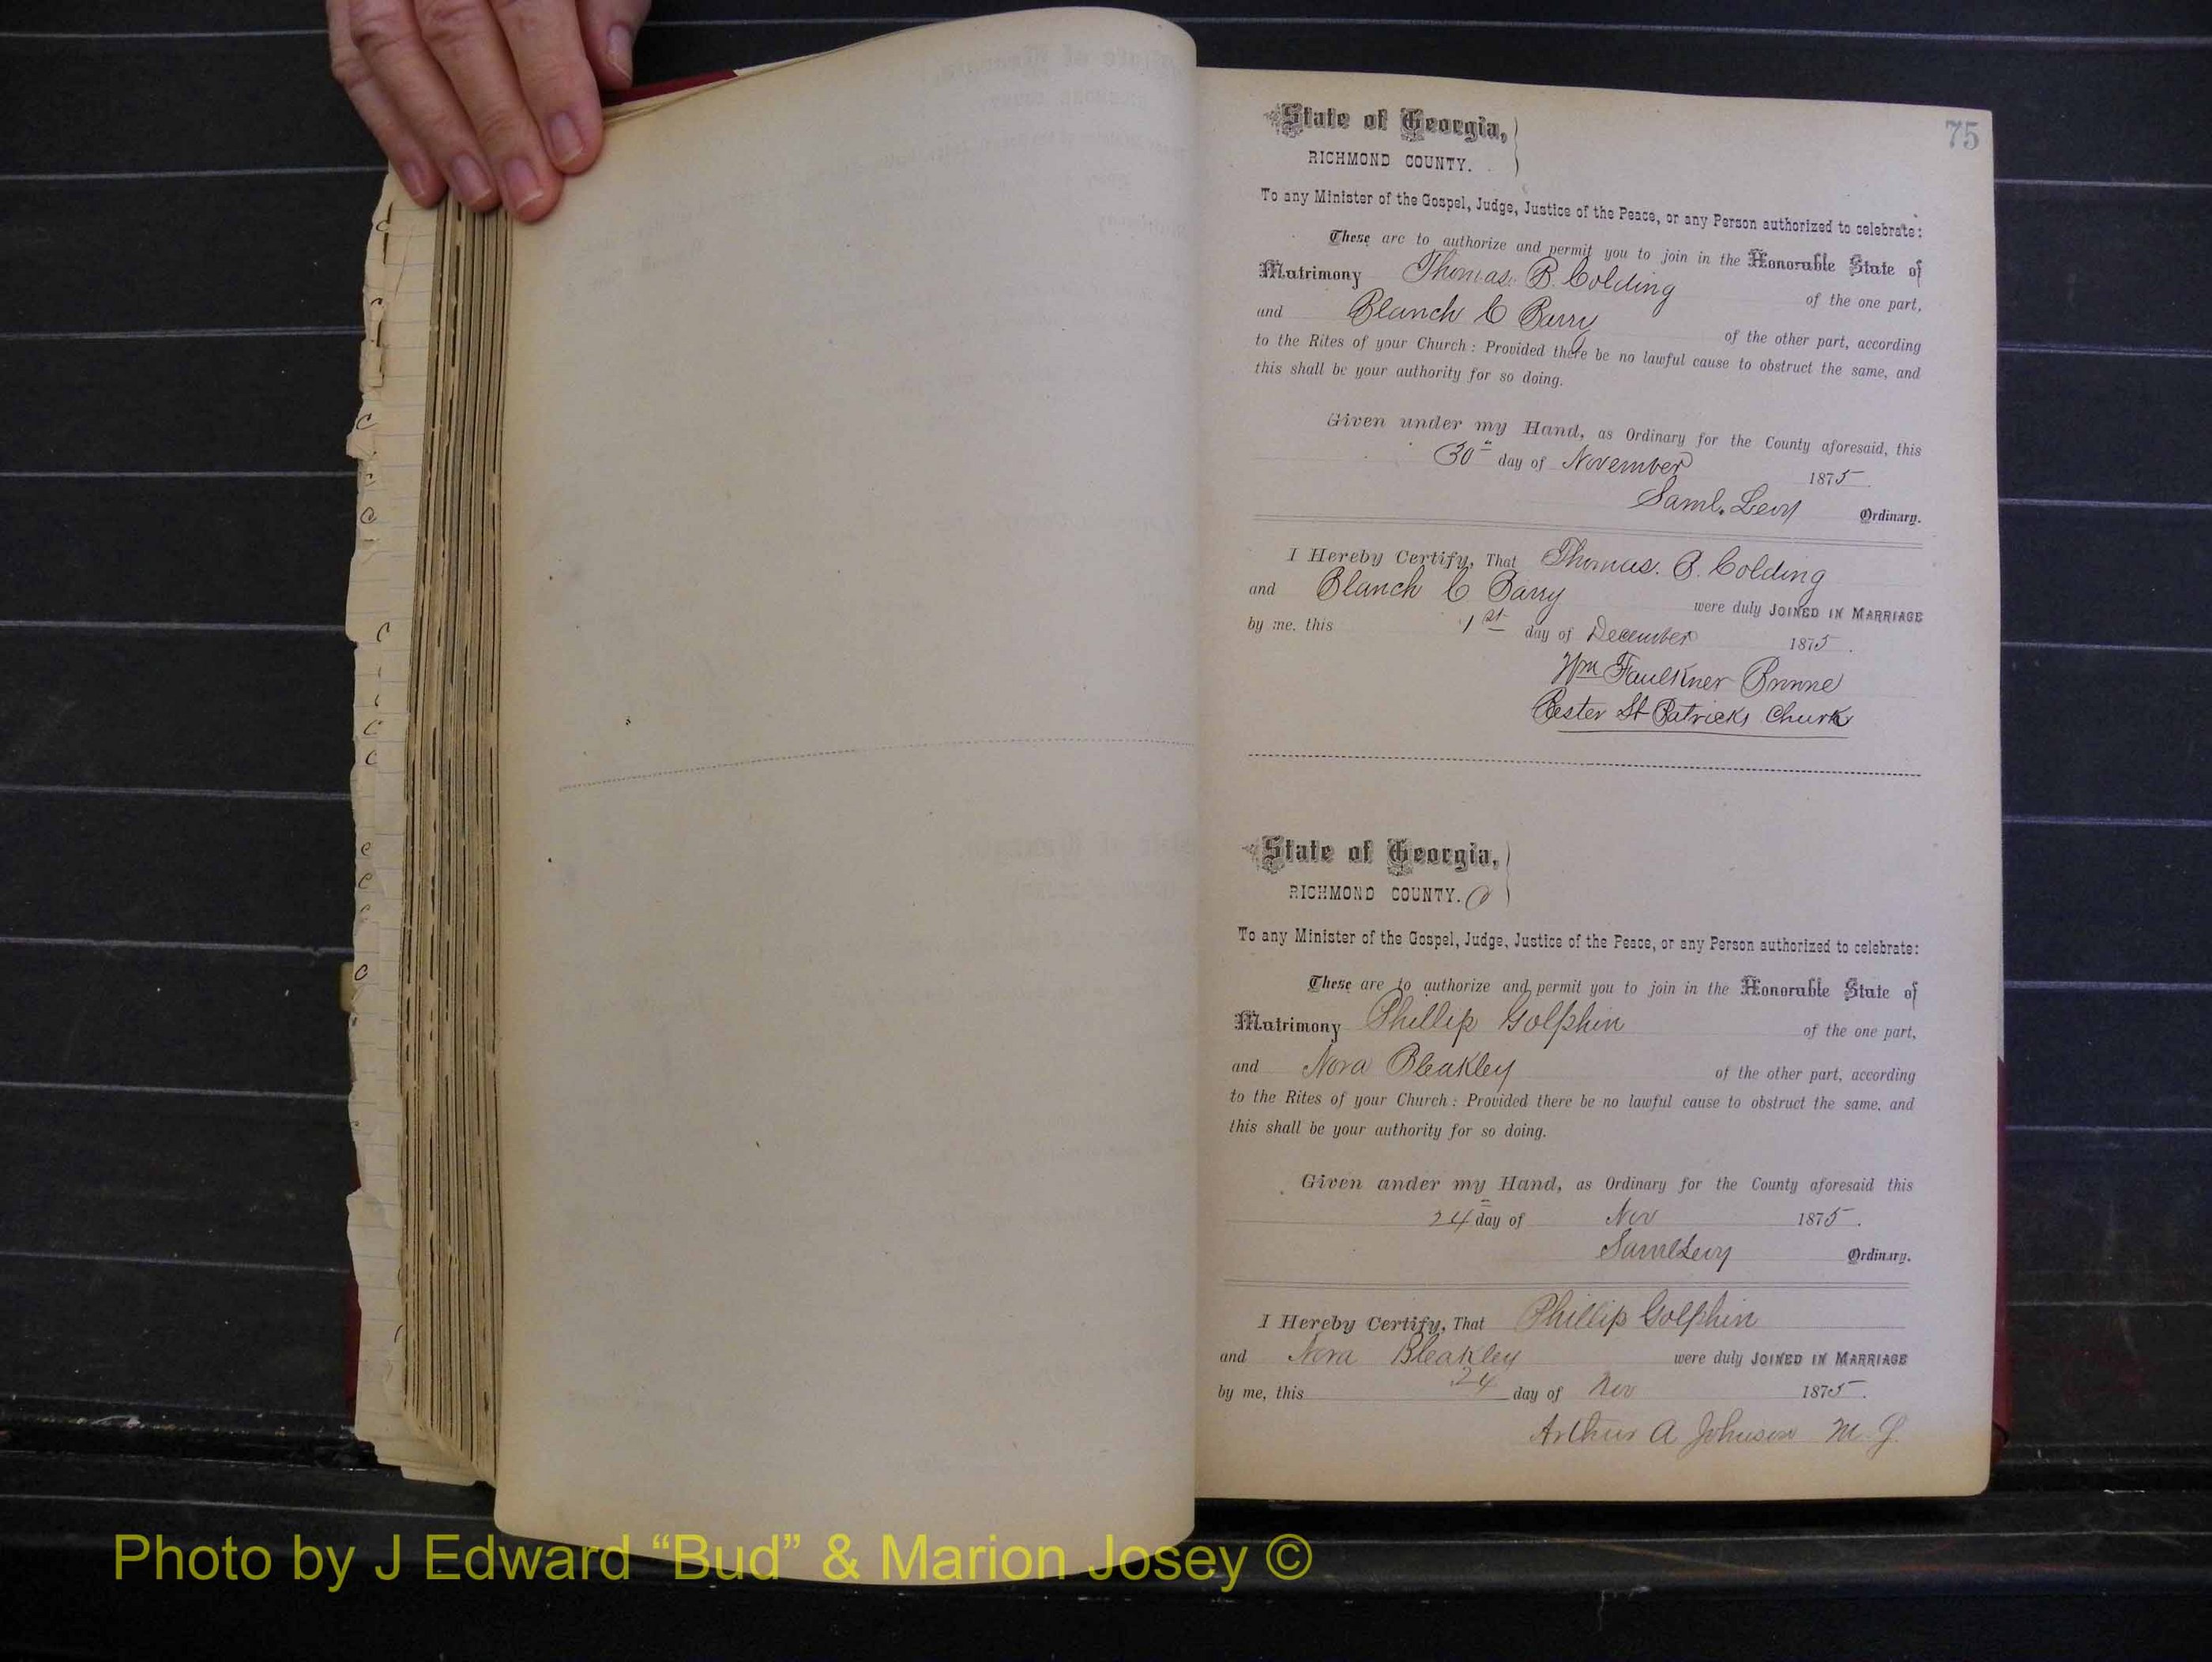 75
State of Georgia,
RICHMOND COUNTY.
To any Minister of the Gospel, Judge, Justice of the Peace, or any Person authorized to celebrate:
These are to authorize and permit you to join in the Honorable State of
Matrimony Thomas. B. Colding of the one part,
and Blanch C Barry of the other part, according
to the Rites of your Church: Provided there be no lawful cause to obstruct the same, and
this shall be your authority for so doing.
Given under my Hand, as Ordinary for the County aforesaid, this
30" day of November 1875.
Saml. Levy Ordinary.
I Hereby Certify, That Thomas. B. Colding
and Blanch C Barry were duly JOINED IN MARRIAGE
by me, this 1st day of December 1875.
Wm Faulkner
St Patricks Church
State of Georgia,
RICHMOND COUNTY.
To any Minister of the Gospel, Judge, Justice of the Peace, or any Person authorized to celebrate:
These are to authorize and permit you to join in the Honorable State of
Matrimony Phillip Golphin of the one part,
and Nora Bleakley of the other part, according
to the Rites of your Church: Provided there be no lawful cause to obstruct the same, and
this shall be your authority for so doing.
Given under my Hand, as Ordinary for the County aforesaid this
24 day of Nov 1875.
Saml Levy Ordinary.
I Hereby Certify, That Phillip Golphin
and Nora Bleakley were duly JOINED IN MARRIAGE
by me, this 24 day of Nov 1875.
Arthur A Johnson M. G.
Photo by J Edward “Bud” & Marion Josey ©